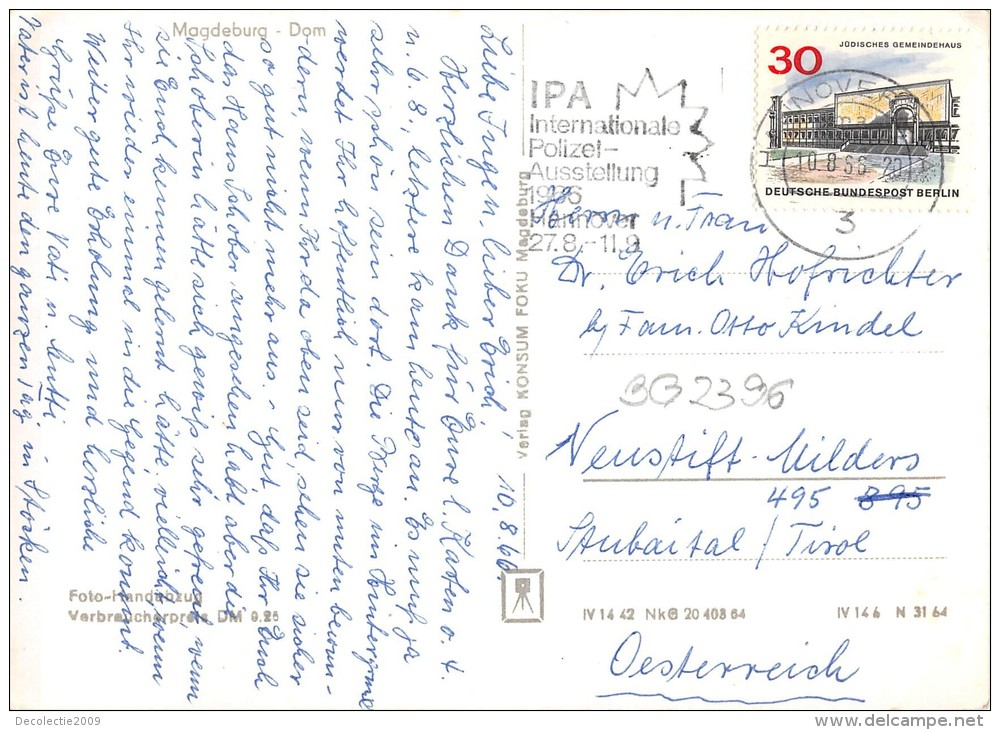 Magdeburg - Dom
10.8.66.
Liebe Ingen, lieber Erich!
Herzlichen Dank für Eure l. Karten v. 4.
u. 6.8., letztere kam heute an. Es muß ja
sehr schön sein dort. Die Berge im Hintergrund
werdet Ihr hoffentlich nur von unten bewun-
dern, wenn Ihr da oben seid sehen sie sicher
so gut nicht mehr aus. - Gut, daß Ihr Euch
das Haus Schober angesehen habt, aber die
Schoberin hätte sich gewiß sehr gefreut, wenn
sie Euch kennen gelernt hätte, vielleicht, wenn
Ihr wieder einmal in die Gegend kommt.
Weiter gute Erholung und herzliche
Grüße Eure Vati u. Mutti
Vater ist heute den ganzen Tag in Stöcken.
Foto-Handabzug
Verbraucherpreis DM 0,25
Verlag KONSUM FOKU Magdeburg
IPA
Internationale
Polizei-
Ausstellung
1966
Hannover
27.8.-11.9.
HANNOVER
10.8.66-20
3
30
JÜDISCHES GEMEINDEHAUS
DEUTSCHE BUNDESPOST BERLIN
Herrn u. Frau
Dr. Erich Hofrichter
by Fam. Otto Kindel
BG2396
Neustift-Milders
495 895
Stubaital / Tirol
IV 14 42 NkG 20 408 64 IV 14 6 N 31 64
Oesterreich
Decolectie2009
delcampe.net